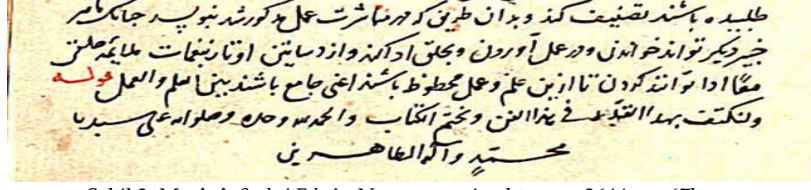 طلبیده باشند تصنیف کند و بدان طریق که در مباشرت عمل مذکور شد بنویسد چنانک ماهر
خبیر دیگر تواند خواندن و در عمل آوردن و بحلق ادا کند و از دساتین اوتار نغمات ملایمه حلق
معًا ادا توانند کردن تا ازین علم و عمل محظوظ باشند اعنی جامع باشند بین العلم و العمل
ولنکتف بهذا القدر فی هذا الفن و نختم الکتاب و الحمد لله وحده وصلواته علی سیدنا
محمد و آله الطاهرین